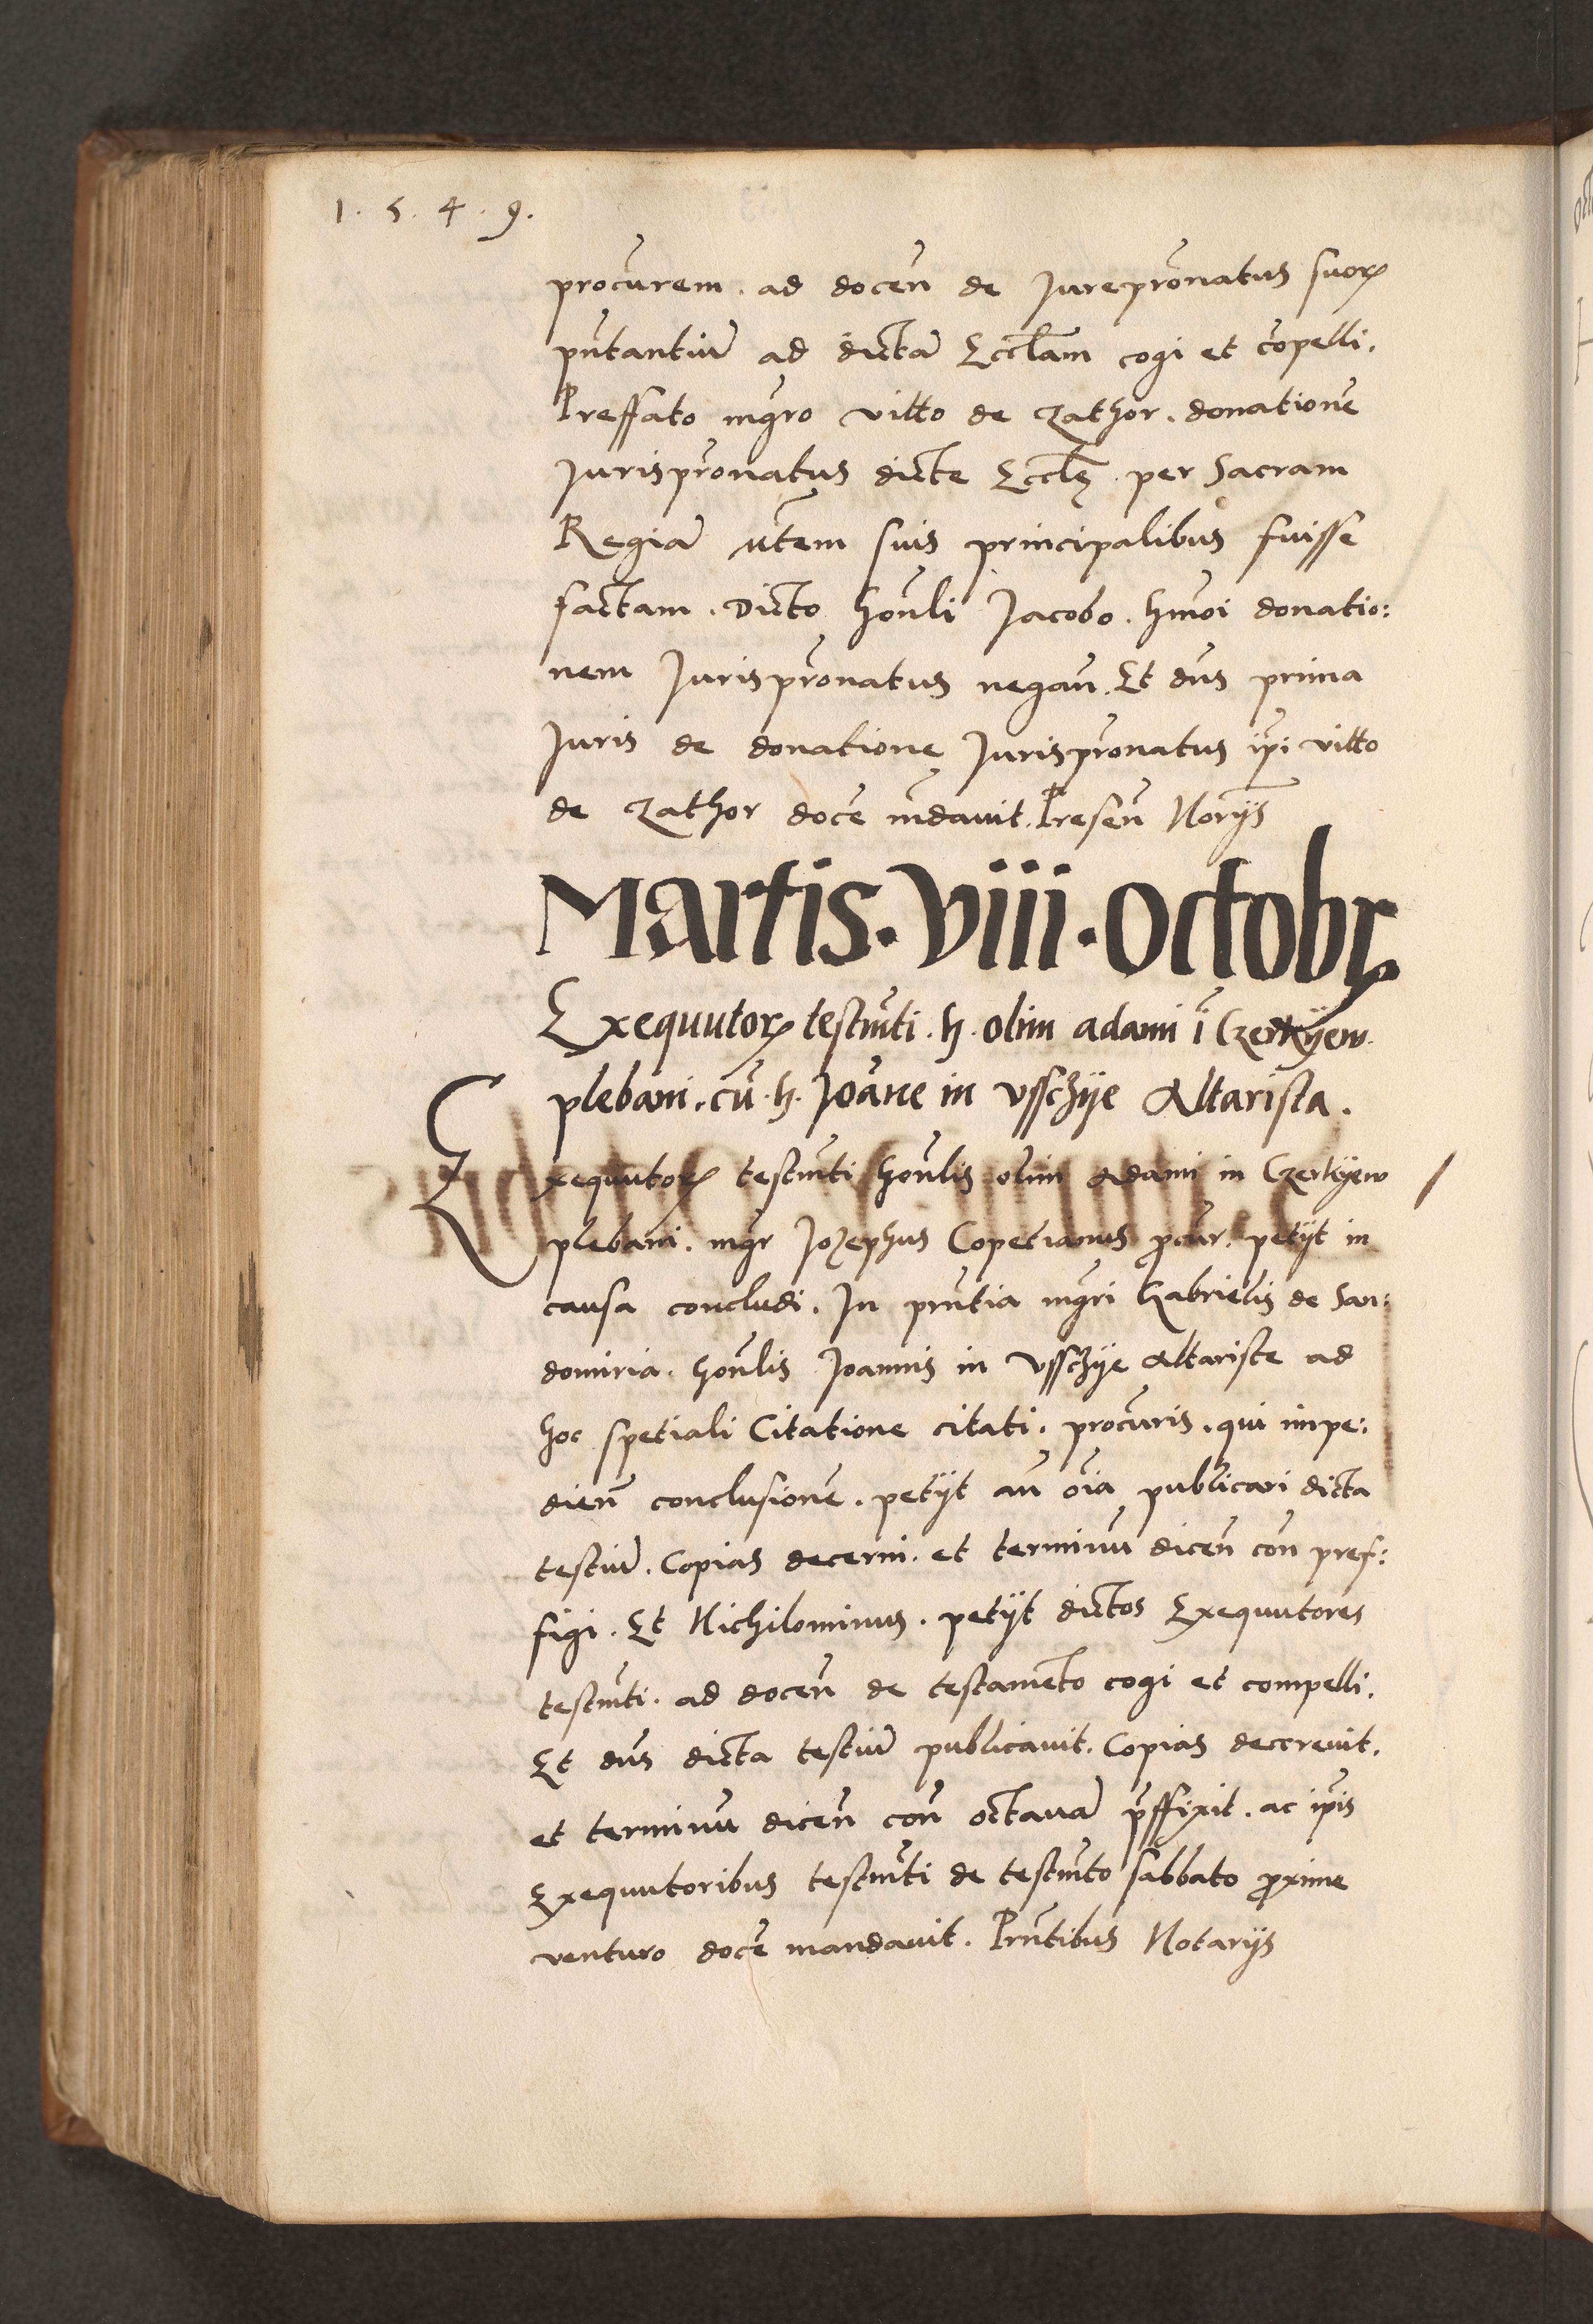 1. 5. 4. 9.
procurem. ad docen̄ de Jureprōnatus suorꝝ
pn̄tantiū ad dictā Eccl̄am cogi et cōpelli.
Preffato mgr̄o vitto de Zathor. donationē
Jurisprōnatus dicte Eccl̄ę. per Sacram
Regiā Mtem suis principalibus fuisse
factam. Dicto hon̄li Jacobo. hmōi donatio:
nem Jurisprōnatus negan̄. Et dn̄s prima
Juris de donatione Jurisprōnatus ip̄i vitto
de Zathor docē mdauit. Presen̄ Norijs
Martis. viii. octobr̨
Exequutorꝝ testmn̄ti. h. olim adami ī Czerkyew
plebani. cū. h. Joāne in vssczye Altarista.
Exequutorꝝ testmn̄ti hon̄lis olim Adami in Czerkyew
plebani. mgr̄ Jozephus Copecianus procūr. petijt in
causa concludi. In prn̄tia mgr̄i Gabrielis de San:
domiria. hon̄lis Joannis in Vssczye Altariste ad
hoc spetiali Citatione citati. procūris. qui impe:
dien̄ conclusionē. petijt an̄ oīa publicari dicta
testiū. Copias decerni. et terminū dicen̄ con̄ pref:
figi. Et Nichilominus. petijt dictos Exequutores
testmn̄ti. ad docen̄ de testamēto cogi et compelli.
Et dn̄s dicta testiū publicauit. Copias decreuit.
et terminū dicen̄ con̄ octauā p̄ffixit. ac ip̄is
Exequutoribus testmn̄ti de testmn̄to sabbato proxime
venturo docē mandauit. Prn̄tibus Notarijs